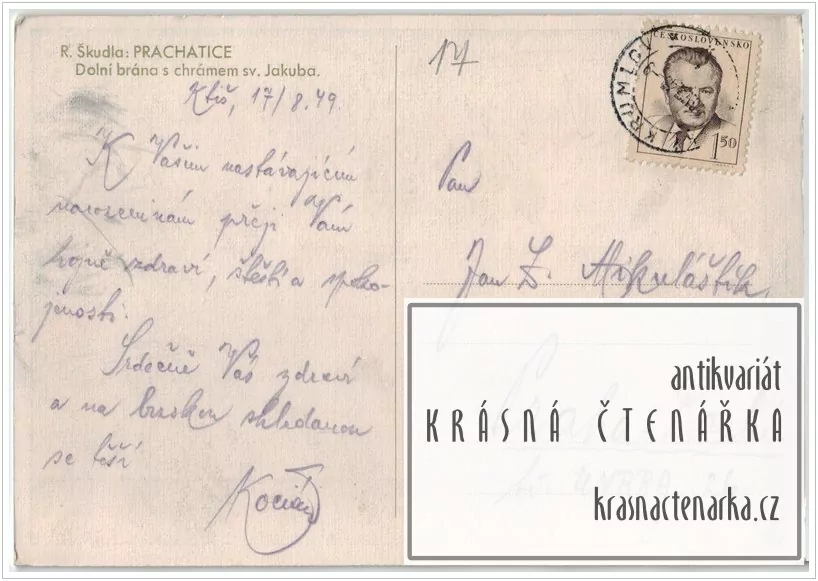 R. Škudla: PRACHATICE
Dolní brána s chrámem sv. Jakuba.
Ktiš, 17/8.49.
K Vašim nastávajícím
narozeninám přeji Vám
hojně zdraví, štěstí a spoko-
jenosti.
Srdečně Vás zdraví
a na brzkou shledanou
se těší
Kocián
17
ČESKOSLOVENSKO
1 50
KRUMLOV
Pan
Jan L. Mikuláštík
antikvariát
KRÁSNÁ ČTENÁŘKA
krasnactenarka.cz